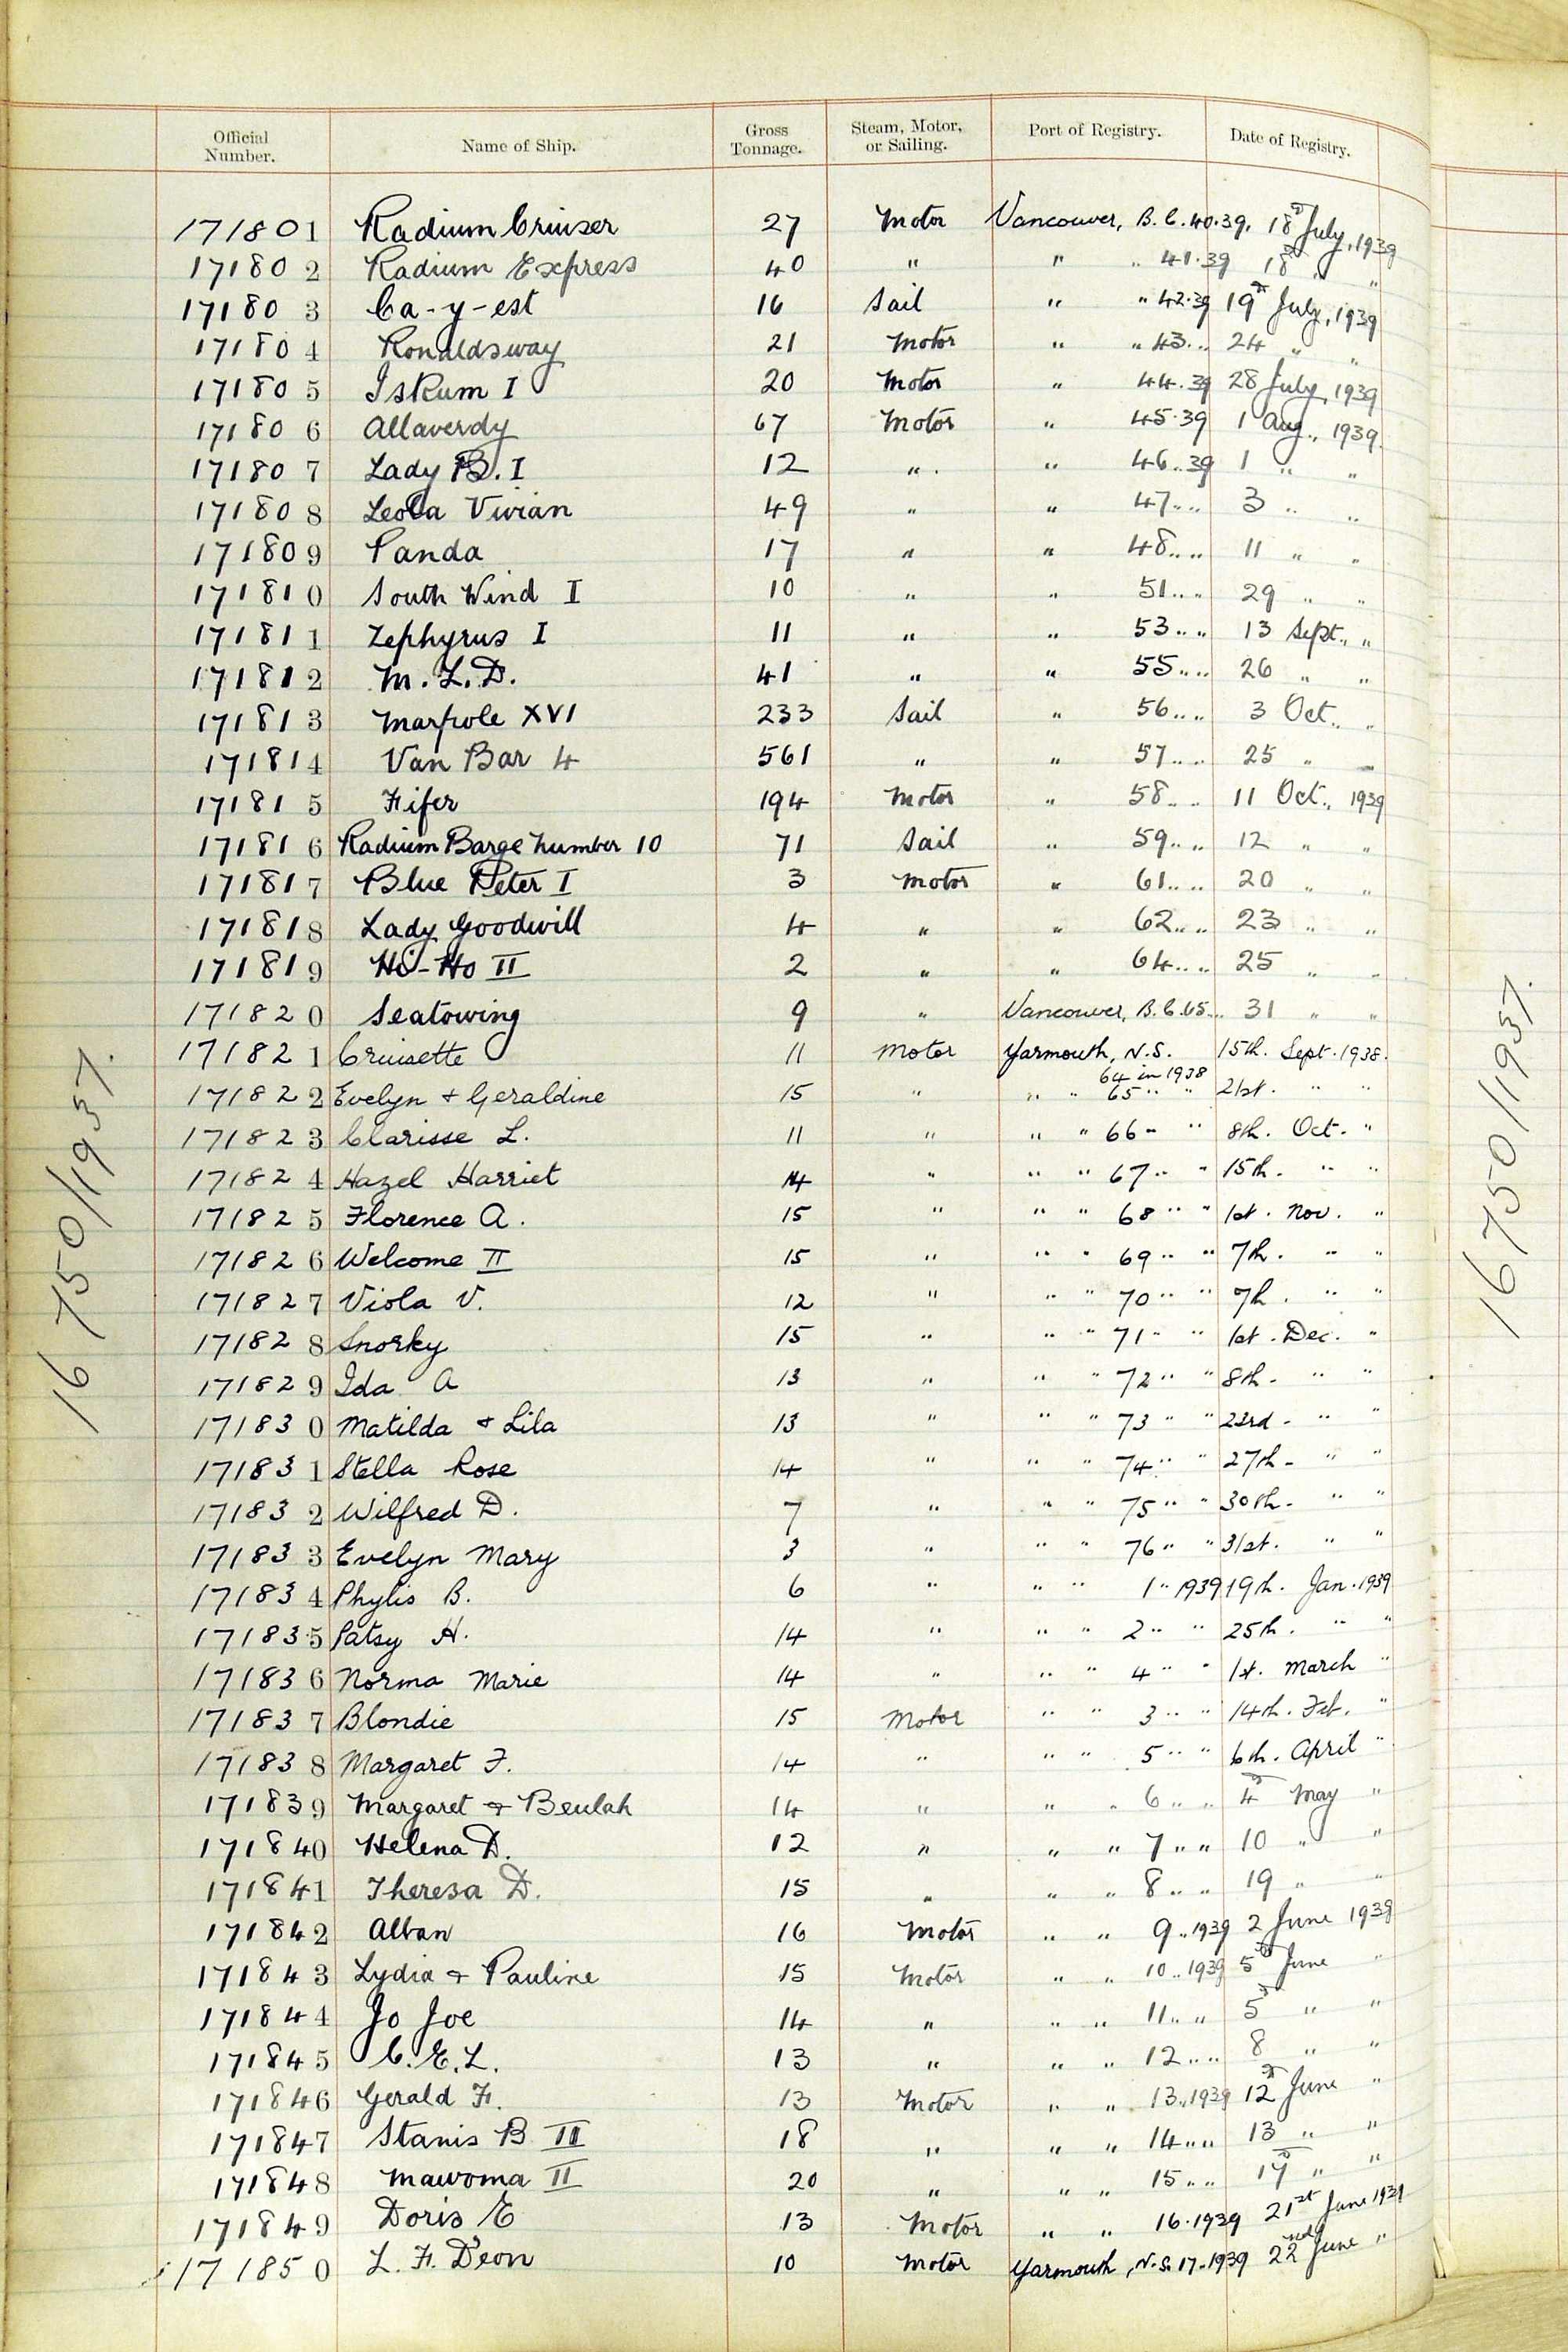 Official Number. Name of Ship. Gross Tonnage. Steam, Motor, or Sailing. Port of Registry. Date of Registry.
171801 Radium Cruiser 27 Motor Vancouver, B.C. 40.39. 18th July, 1939
171802 Radium Express 40 " " " 41.39 18th " "
171803 Ca-y-est 16 Sail " " 42.39 19th July, 1939
171804 Ronaldsway 21 Motor " " 43 .. 24 " "
171805 Iskum I 20 Motor " 44.39 28 July, 1939
171806 Allaverdy 67 Motor " 45.39 1 Aug., 1939.
171807 Lady B. I 12 " " 46..39 1 " "
171808 Leola Vivian 49 " " 47.. .. 3 " "
171809 Panda 17 " " 48.. .. 11 " "
171810 South Wind I 10 " " 51.. .. 29 " "
171811 Zephyrus I 11 " " 53.. .. 13 Sept., "
171812 M.L.D. 41 " " 55.. .. 26 " "
171813 Marpole XVI 233 Sail " 56.. .. 3 Oct. "
171814 Van Bar 4 561 " " 57.. .. 25 " "
171815 Fifer 194 Motor " 58.. .. 11 Oct., 1939
171816 Radium Barge Number 10 71 Sail " 59.. .. 12 " "
171817 Blue Peter I 3 Motor " 61.. .. 20 " "
171818 Lady Goodwill 4 " " 62.. .. 23 " "
171819 Hi-Ho II 2 " " 64.. .. 25 " "
171820 Seatowing 9 " Vancouver, B.C. 65... 31 " "
171821 Cruisette 11 Motor Yarmouth, N.S. 64 in 1938 15th. Sept. 1938.
171822 Evelyn & Geraldine 15 " " " 65 " " 21st. " "
171823 Clarisse L. 11 " " " 66 " " 8th. Oct. "
171824 Hazel Harriet 14 " " " 67 " " 15th. " "
171825 Florence A. 15 " " " 68 " " 1st. Nov. "
171826 Welcome II 15 " " " 69 " " 7th. " "
171827 Viola V. 12 " " " 70 " " 7th. " "
171828 Snorky 15 " " " 71 " " 1st. Dec. "
171829 Ida A 13 " " " 72 " " 8th. " "
171830 Matilda & Lila 13 " " " 73 " " 23rd. " "
171831 Stella Rose 14 " " " 74 " " 27th. " "
171832 Wilfred D. 7 " " " 75 " " 30th. " "
171833 Evelyn Mary 3 " " " 76 " " 31st. " "
171834 Phylis B. 6 " " " 1 " 1939 19th. Jan. 1939
171835 Patsy H. 14 " " " 2 " " 25th. " "
171836 Norma Marie 14 " " " 4 " " 1st. March "
171837 Blondie 15 Motor " " 3 " " 14th. Feb. "
171838 Margaret F. 14 " " " 5 " " 6th. April "
171839 Margaret & Beulah 14 " " " 6 " " 4th May "
171840 Helena D. 12 " " " 7 " " 10 " "
171841 Theresa D. 15 " " " 8 " " 19 " "
171842 Alban 16 Motor " " 9..1939 2 June 1939
171843 Lydia & Pauline 15 Motor " " 10..1939 5th June "
171844 Jo Joe 14 " " " 11.. .. 5th " "
171845 C.E.L. 13 " " " 12.. .. 8 " "
171846 Gerald F. 13 Motor " " 13..1939 12th June "
171847 Stanis B III 18 " " " 14.. .. 13 " "
171848 Mawoma II 20 " " " 15.. .. 17th " "
171849 Doris E 13 Motor " " 16.1939 21st June 1939
171850 L.F. D'eon 10 Motor Yarmouth, N.S. 17-1939 22nd June "
16750/1937.
16750/1937.